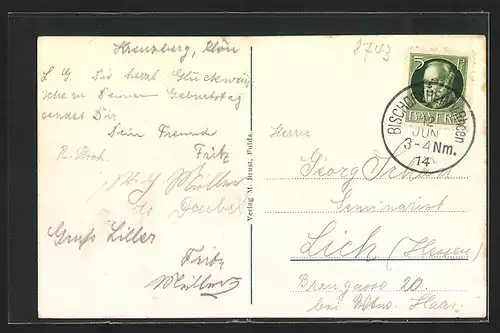 Kreuzberg, Rhön
8743
L G Die herzl Glückwün-
sche zu Deinem Geburtstag
sendet Dir
Dein Freund
Fritz
R. Groh.
Müller
Gruß Liller
Fritz
Müller
Verlag M. Brust, Fulda.
5 Pf
BAYERN
BISCHOF
JUN
3-4Nm.
14
Herrn
Georg
Seminarist
Lich (Hessen)
Braugasse 20.
bei Wtw. Haas